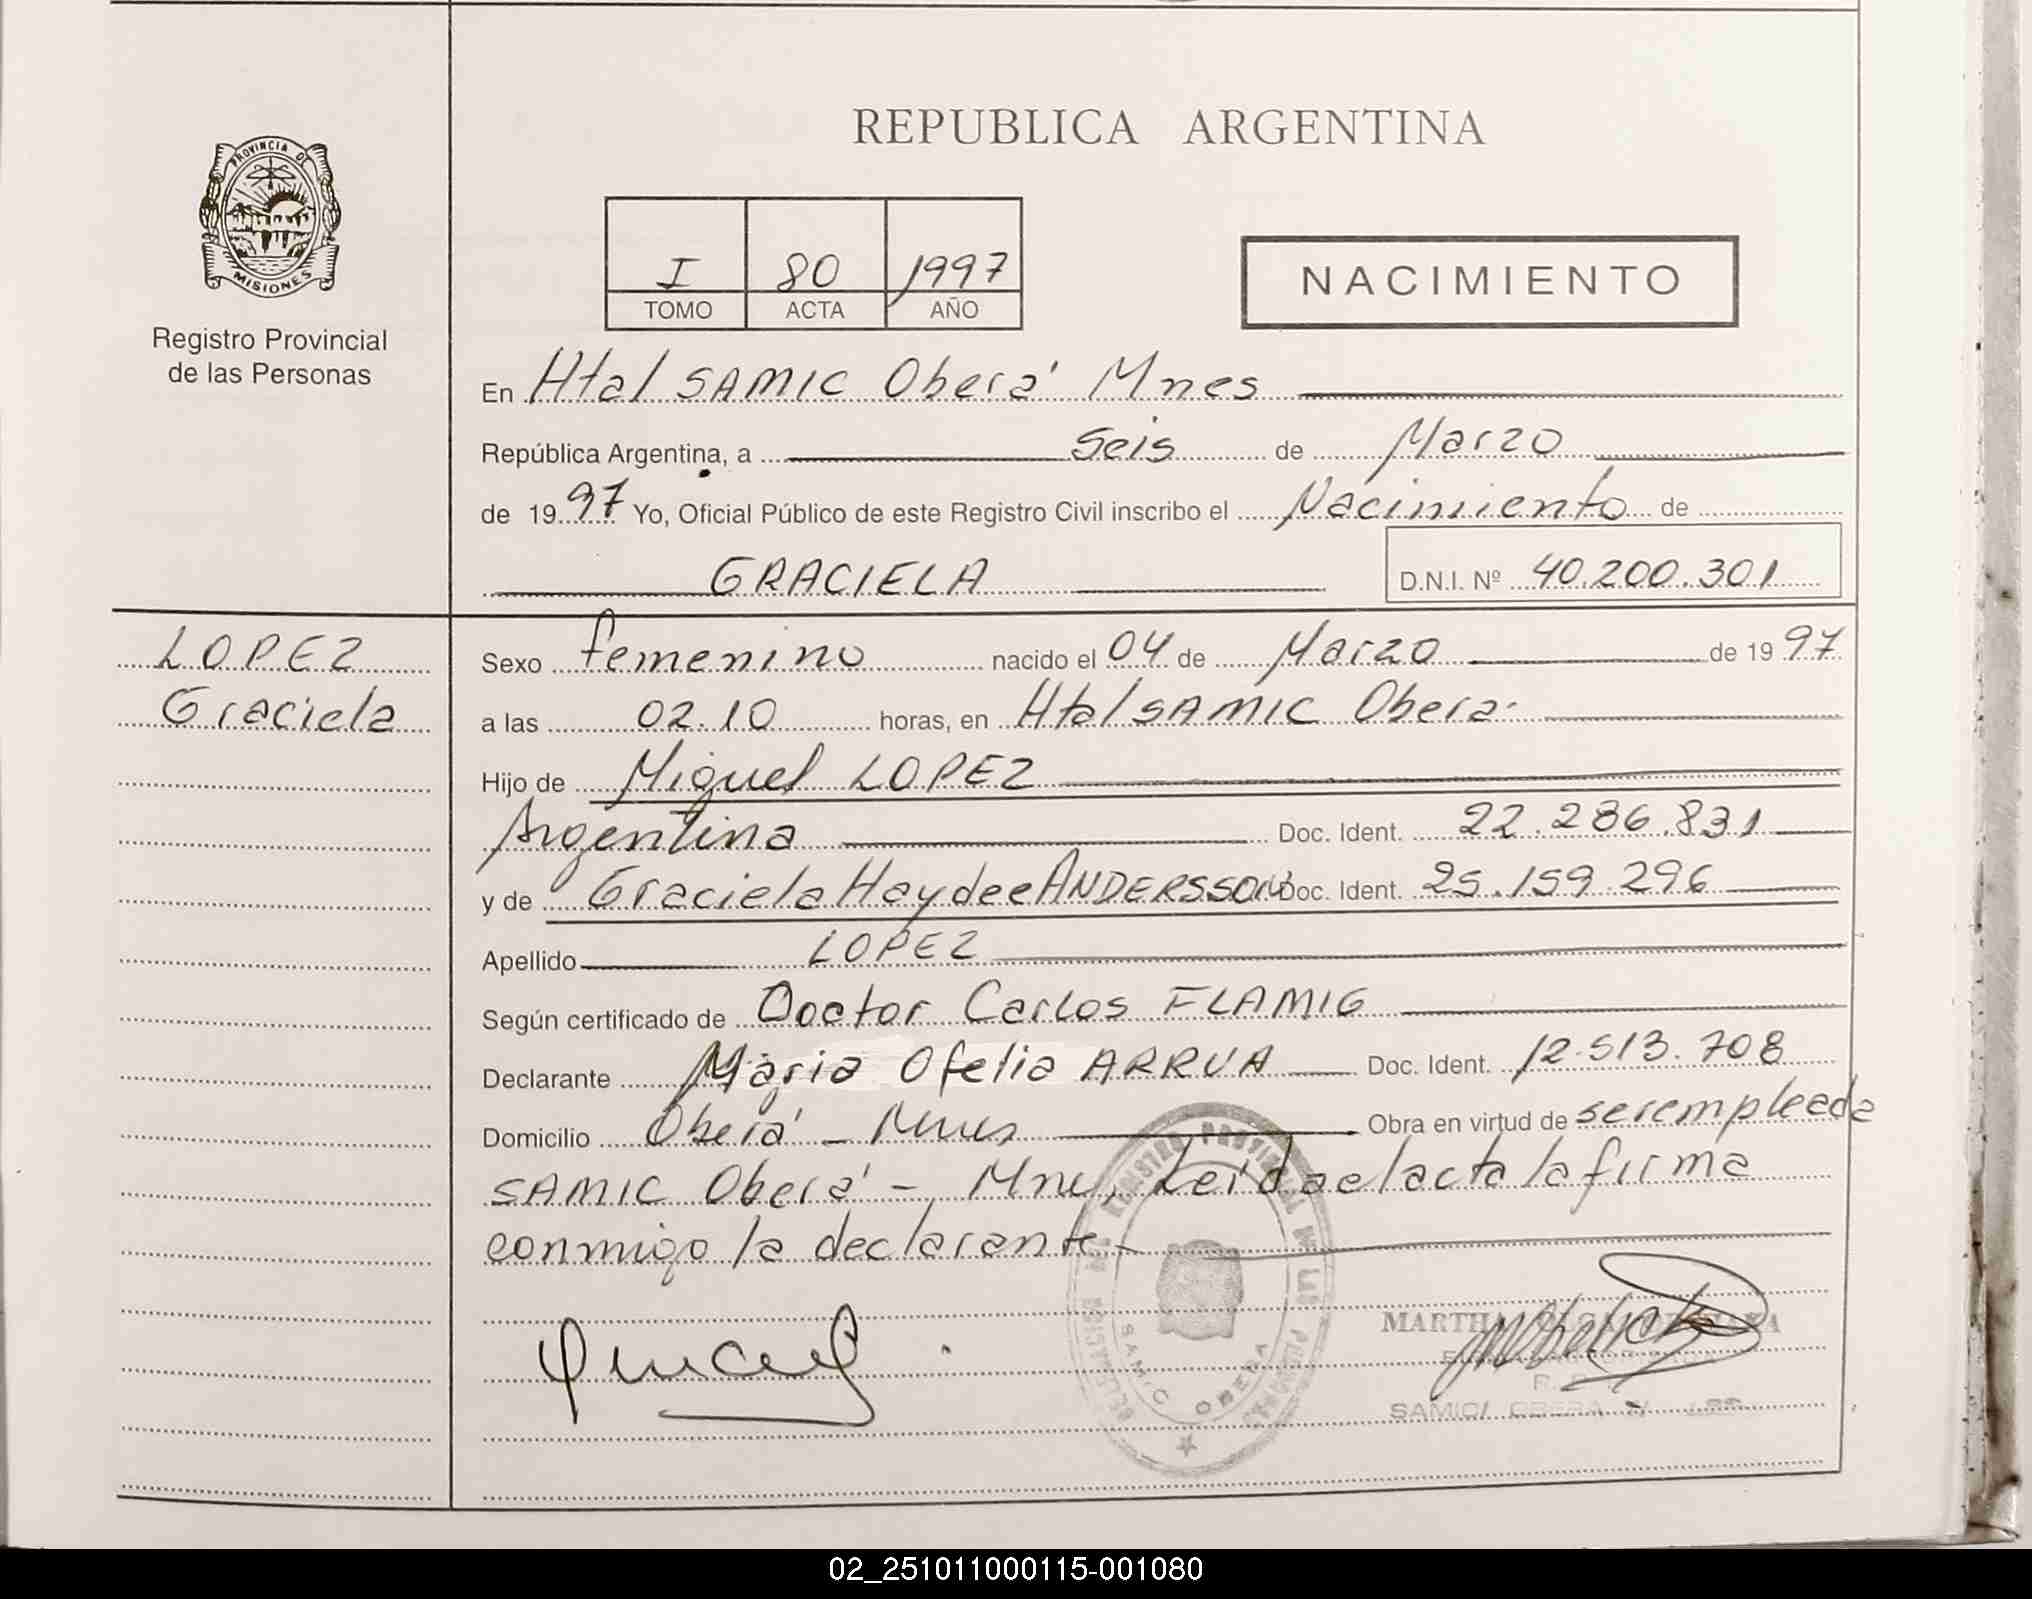 REPUBLICA ARGENTINA
PROVINCIA DE
MISIONES
Registro Provincial
de las Personas
I 80 1997
TOMO ACTA AÑO
NACIMIENTO
En Htal SAMIC Oberá Mnes
República Argentina, a Seis de Marzo
de 1997 Yo, Oficial Público de este Registro Civil inscribo el Nacimiento de
GRACIELA D.N.I. Nº 40.200.301
LOPEZ
Graciela
Sexo femenino nacido el 04 de Marzo de 1997
a las 02.10 horas, en Htal SAMIC Oberá
Hijo de Miguel LOPEZ
Argentina Doc. Ident. 22.286.831
y de Graciela Haydee ANDERSSON Doc. Ident. 25.159.296
Apellido LOPEZ
Según certificado de Doctor Carlos FLAMIG
Declarante Maria Ofelia ARRUA Doc. Ident. 12.513.708
Domicilio Oberá - Mnes Obra en virtud de ser empleada
SAMIC Oberá - Mnes, Leida el acta la firma
conmigo la declarante
REGISTRO PROVINCIAL DE LAS PERSONAS
SAMIC OBERA
MARTHA
SAMIC/ OBERA
02_251011000115-001080